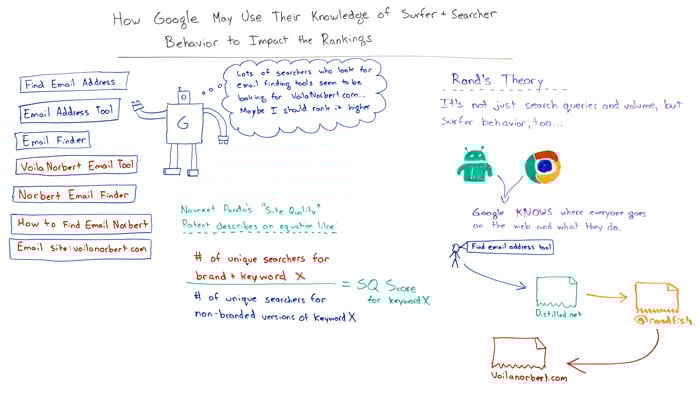 How Google May Use Their Knowledge of Surfer + Searcher
Behavior to Impact the Rankings
Find Email Address
Email Address Tool
Email Finder
VoilaNorbert Email Tool
Norbert Email Finder
How to Find Email Norbert
Email site:voilanorbert.com
G
Lots of searchers who look for
email finding tools seem to be
looking for VoilaNorbert.com...
Maybe I should rank it higher
Navneet Panda's "Site Quality"
Patent describes an equation like:
# of unique searchers for
brand + keyword X
# of unique searchers for
non-branded versions of keyword X
= SQ Score
for keyword X
Rand's Theory
It's not just search queries and volume, but
surfer behavior, too...
Google KNOWS where everyone goes
on the web and what they do.
Find email address tool
Distilled.net
@randfish
Voilanorbert.com